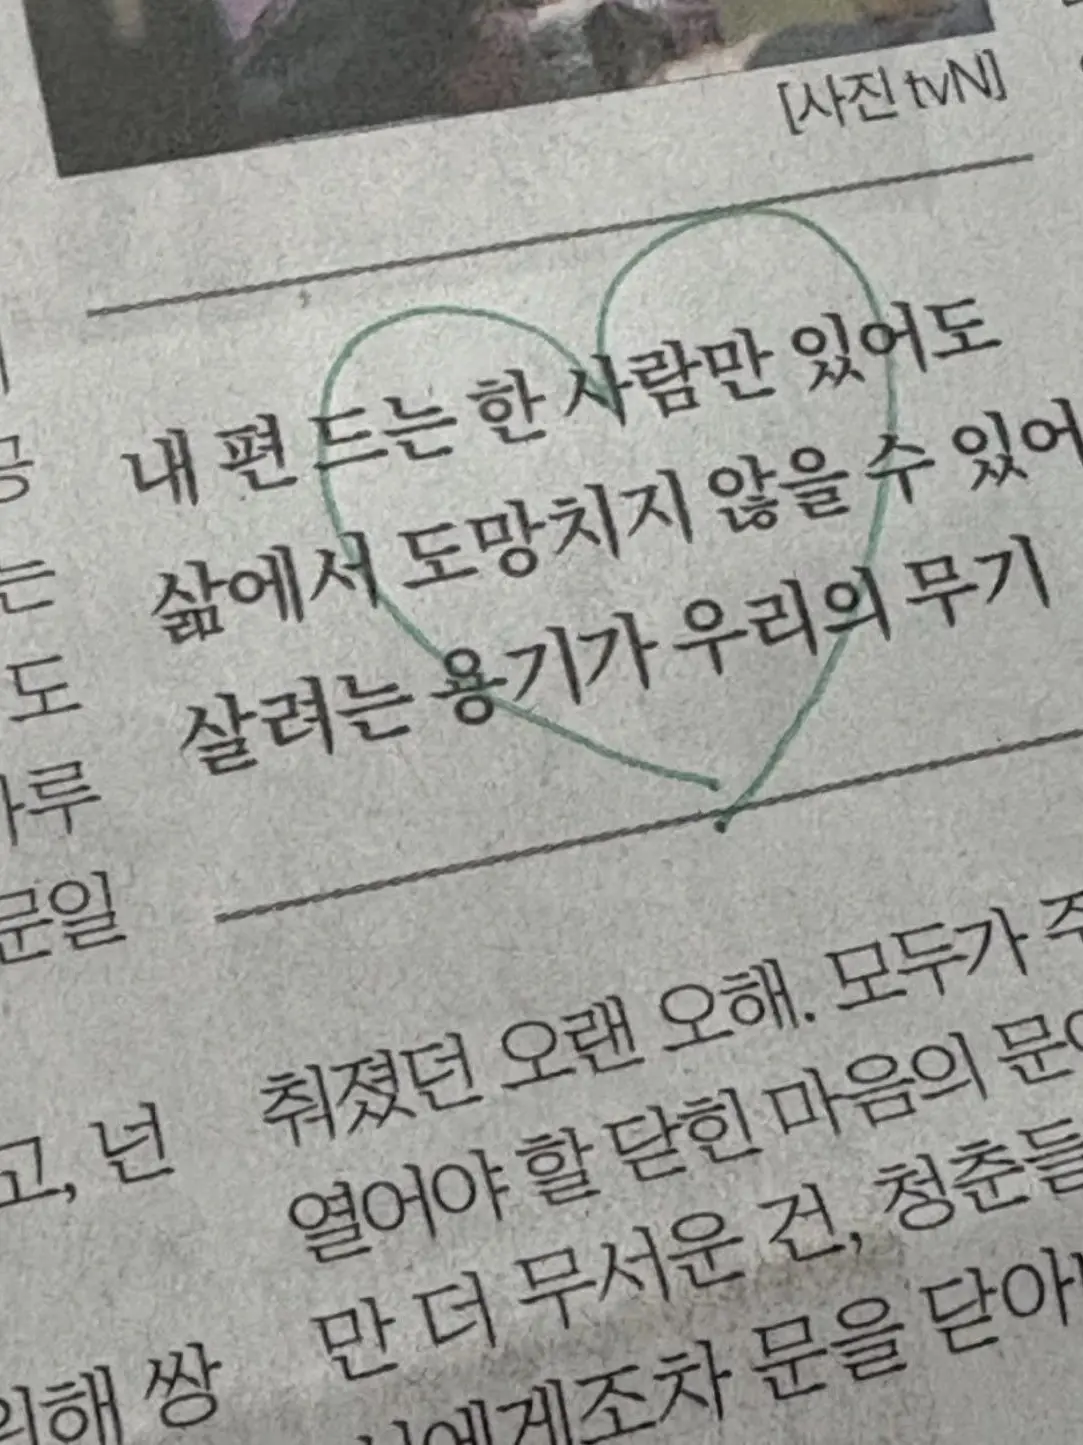 [사진 tvN]
내 편 드는 한 사람만 있어도
삶에서 도망치지 않을 수 있어
살려는 용기가 우리의 무기
는
도
루
문일
고, 넌
의해 쌍
춰졌던 오랜 오해. 모두가
열어야 할 닫힌 마음의
만 더 무서운 건, 청춘들
에게조차 문을 닫아